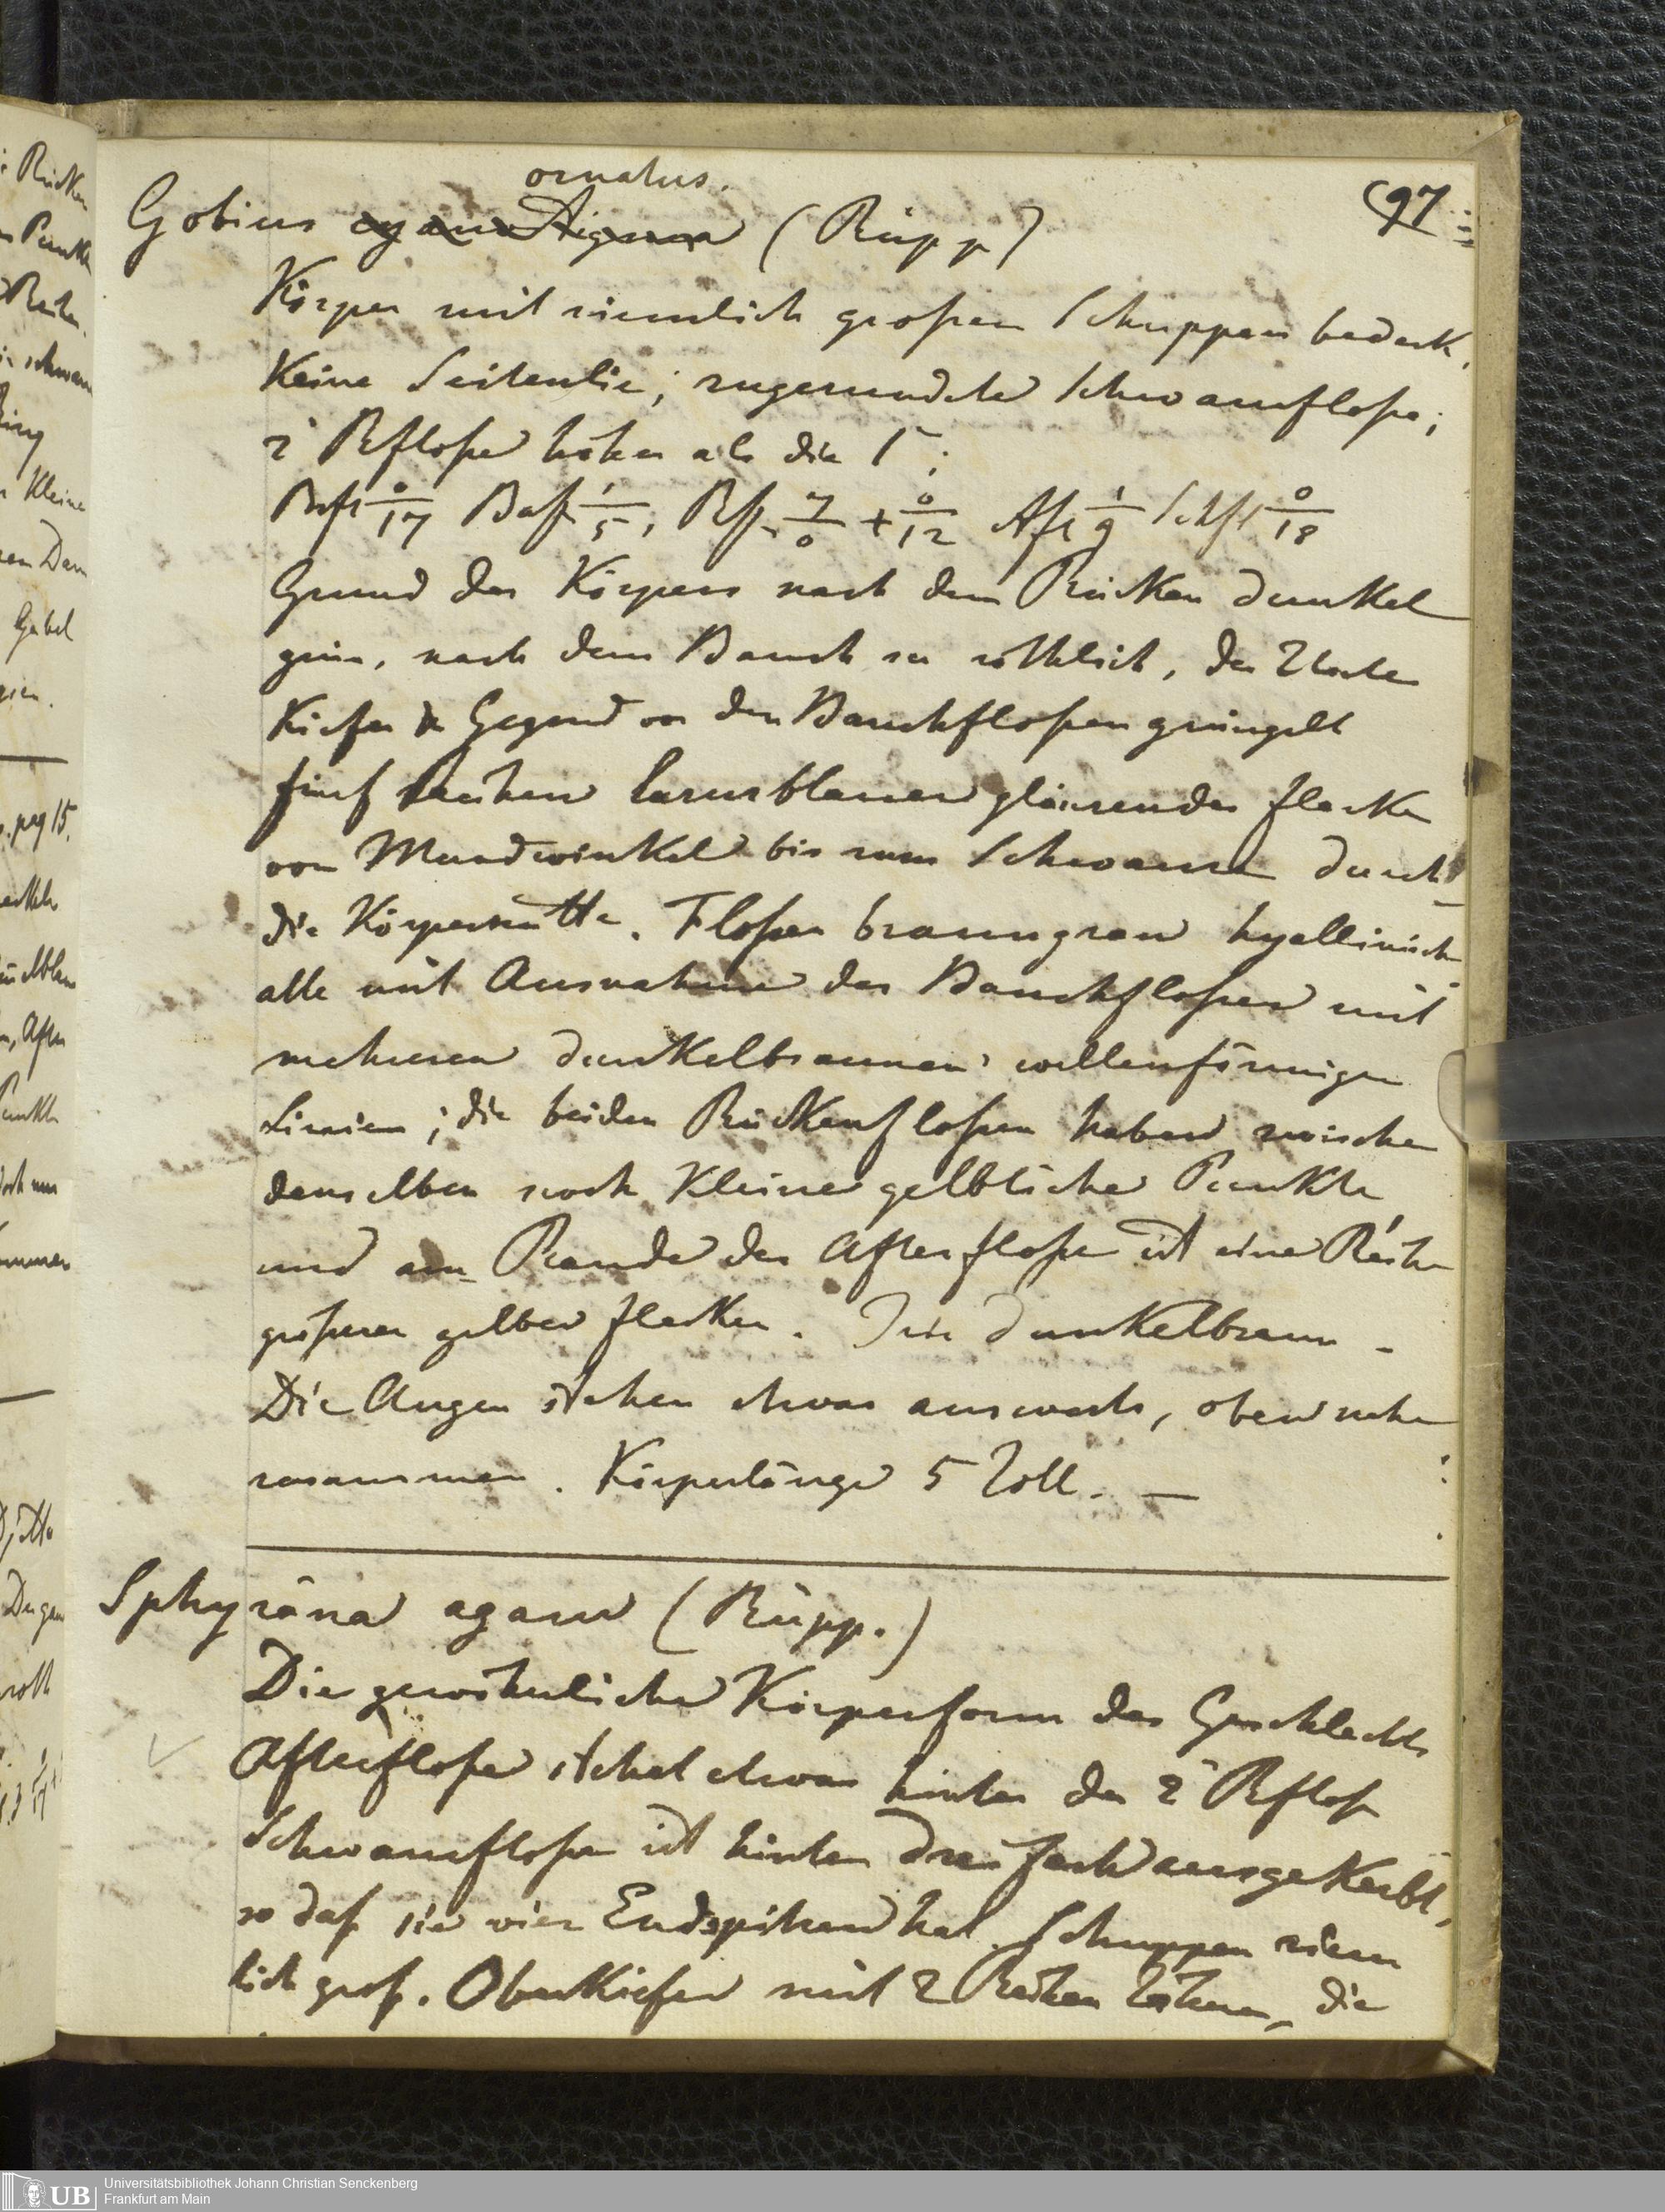 97
ornatus.
Gobius cyanostigma (Rüpp)
Körper mit ziemlich großen Schuppen bedeckt,
Keine Seitenlie; zugerundete Schwanzfloße;
2t Rfloße höher als die 1t;
Brfl 0/17 Bafl 1/5, Rfl 7/0 + 0/12 Afl 1/9 Schfl 0/18
Grund des Körpers nach dem Rücken dunkel
grün, nach dem Bauch zu röthlich, der Unter
Kiefer & Gegend vor den Bauchfloßen grüngelb
fünf Reihen lasurblauer glänzender Flecken
von Mundwinkel bis zum Schwanze durch
die Körpermitte. Floßen braungrau hyallinisch
alle mit Ausnahme der Bauchfloßen mit
mehreren dunkelbraunen wellenförmigen
Linien; die beiden Rückenfloßen haben zwischen
denselben noch Kleine gelbliche Punkte
und am Rande der Afterfloße ist eine Reihe
größerer gelber Flecken. Iris dunkelbraun -
Die Augen stehen etwas auswerts, oben nahe
zusammen. Körperlänge 5 Zoll. —
Sphyräna agam (Rüpp.)
Die gewöhnliche Körperform des Geschlechts
Afterfloße stehet etwas hinter der 2t Rfloß
Schwanzfloße ist hinten dreifach ausgekerbt,
so daß sie vier Endspitzen hat. Schuppen ziem
lich groß. Oberkiefer mit 2 Reihen Zähnen, die
Universitätsbibliothek Johann Christian Senckenberg
Frankfurt am Main
UB